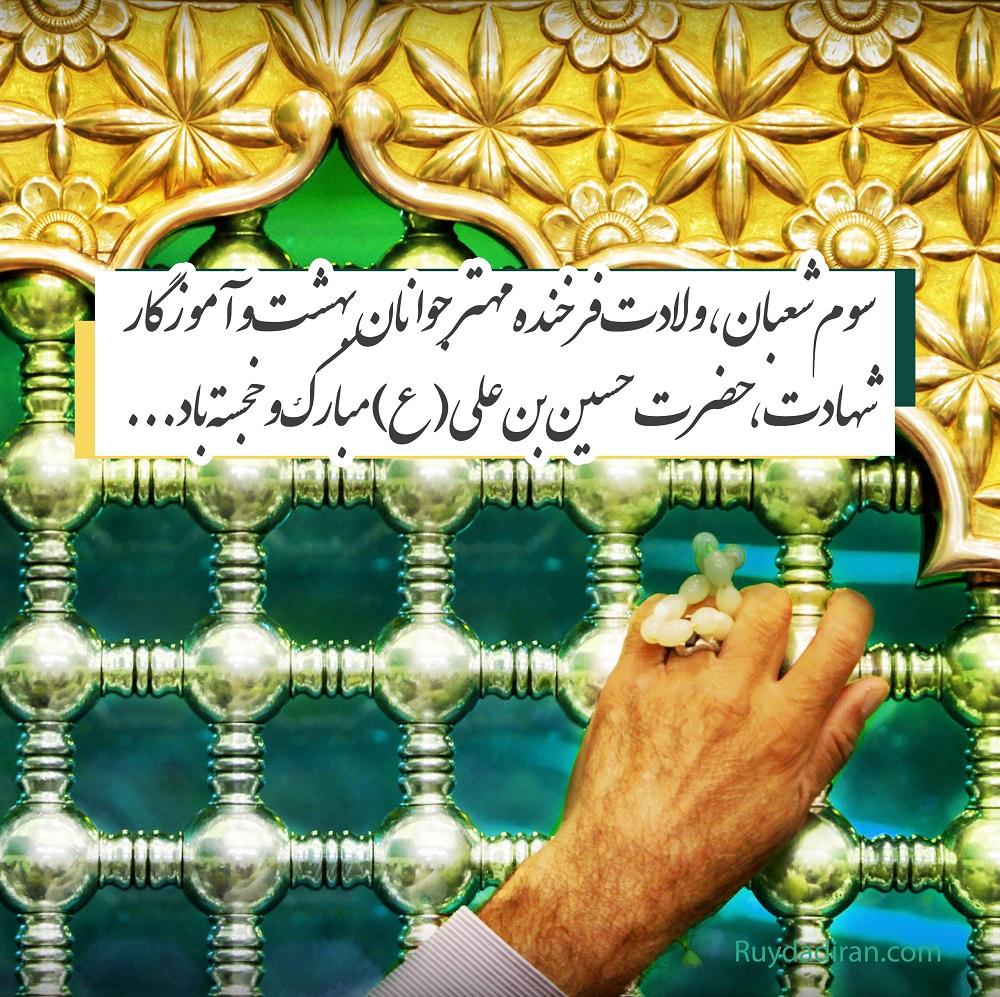 سوم شعبان، ولادت فرخنده مهتر جوانان بهشت و آموزگار
شهادت، حضرت حسین بن علی (ع) مبارک و خجسته باد...
Ruydadiran.com